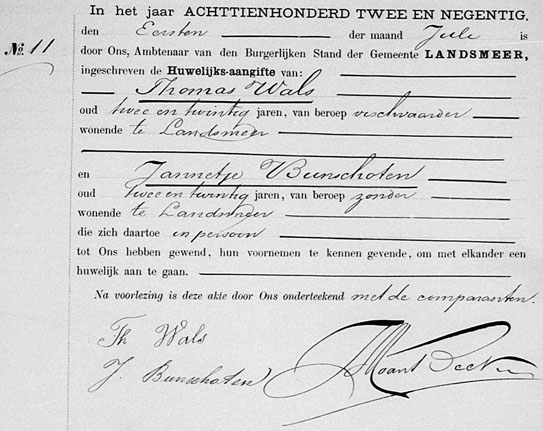 In het jaar ACHTTIENHONDERD TWEE EN NEGENTIG.
den Eersten der maand Julij is
No. 11
door Ons, Ambtenaar van den Burgerlijken Stand der Gemeente LANDSMEER,
ingeschreven de Huwelijks-aangifte van:
Thomas Wals
oud twee en twintig jaren, van beroep
wonende te Landsmeer
en Jannetje Bunschoten
oud twee en twintig jaren, van beroep zonder
wonende te Landsmeer
die zich daartoe in persoon
tot Ons hebben gewend, hun voornemen te kennen gevende, om met elkander een
huwelijk aan te gaan.
Na voorlezing is deze akte door Ons onderteekend met de comparanten.
Th Wals
J. Bunschoten